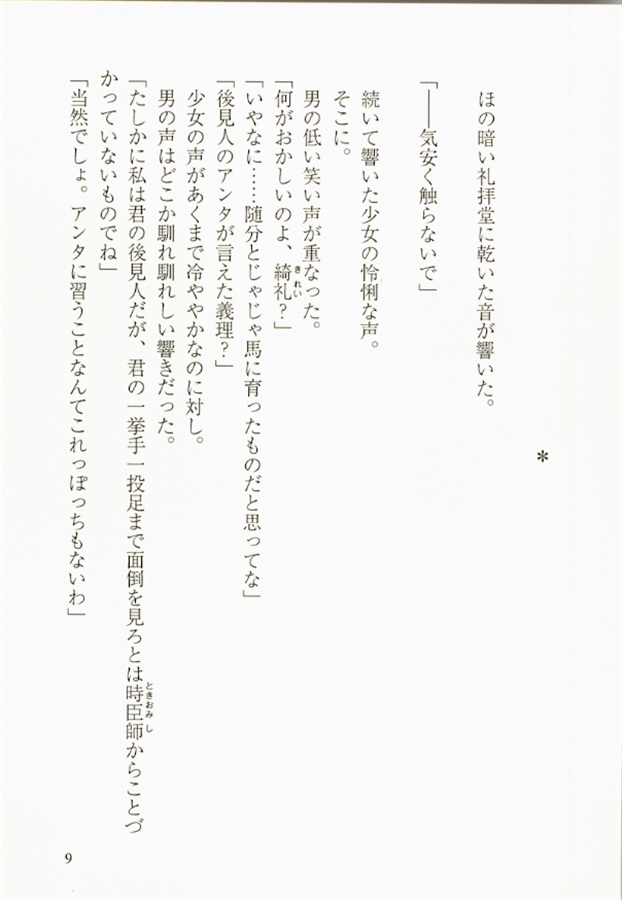 *
ほの暗い礼拝堂に乾いた音が響いた。
「――気安く触らないで」
続いて響いた少女の怜悧な声。
そこに。
男の低い笑い声が重なった。
「何がおかしいのよ、綺礼？」
きれい
「いやなに……随分とじゃじゃ馬に育ったものだと思ってな」
「後見人のアンタが言えた義理？」
少女の声があくまで冷ややかなのに対し。
男の声はどこか馴れ馴れしい響きだった。
「たしかに私は君の後見人だが、君の一挙手一投足まで面倒を見ろとは時臣師からことづ
ときおみし
かっていないものでね」
「当然でしょ。アンタに習うことなんてこれっぽっちもないわ」
9